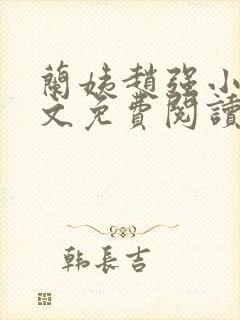 蘭姨趙强小
文免費閱讀
韩長吉